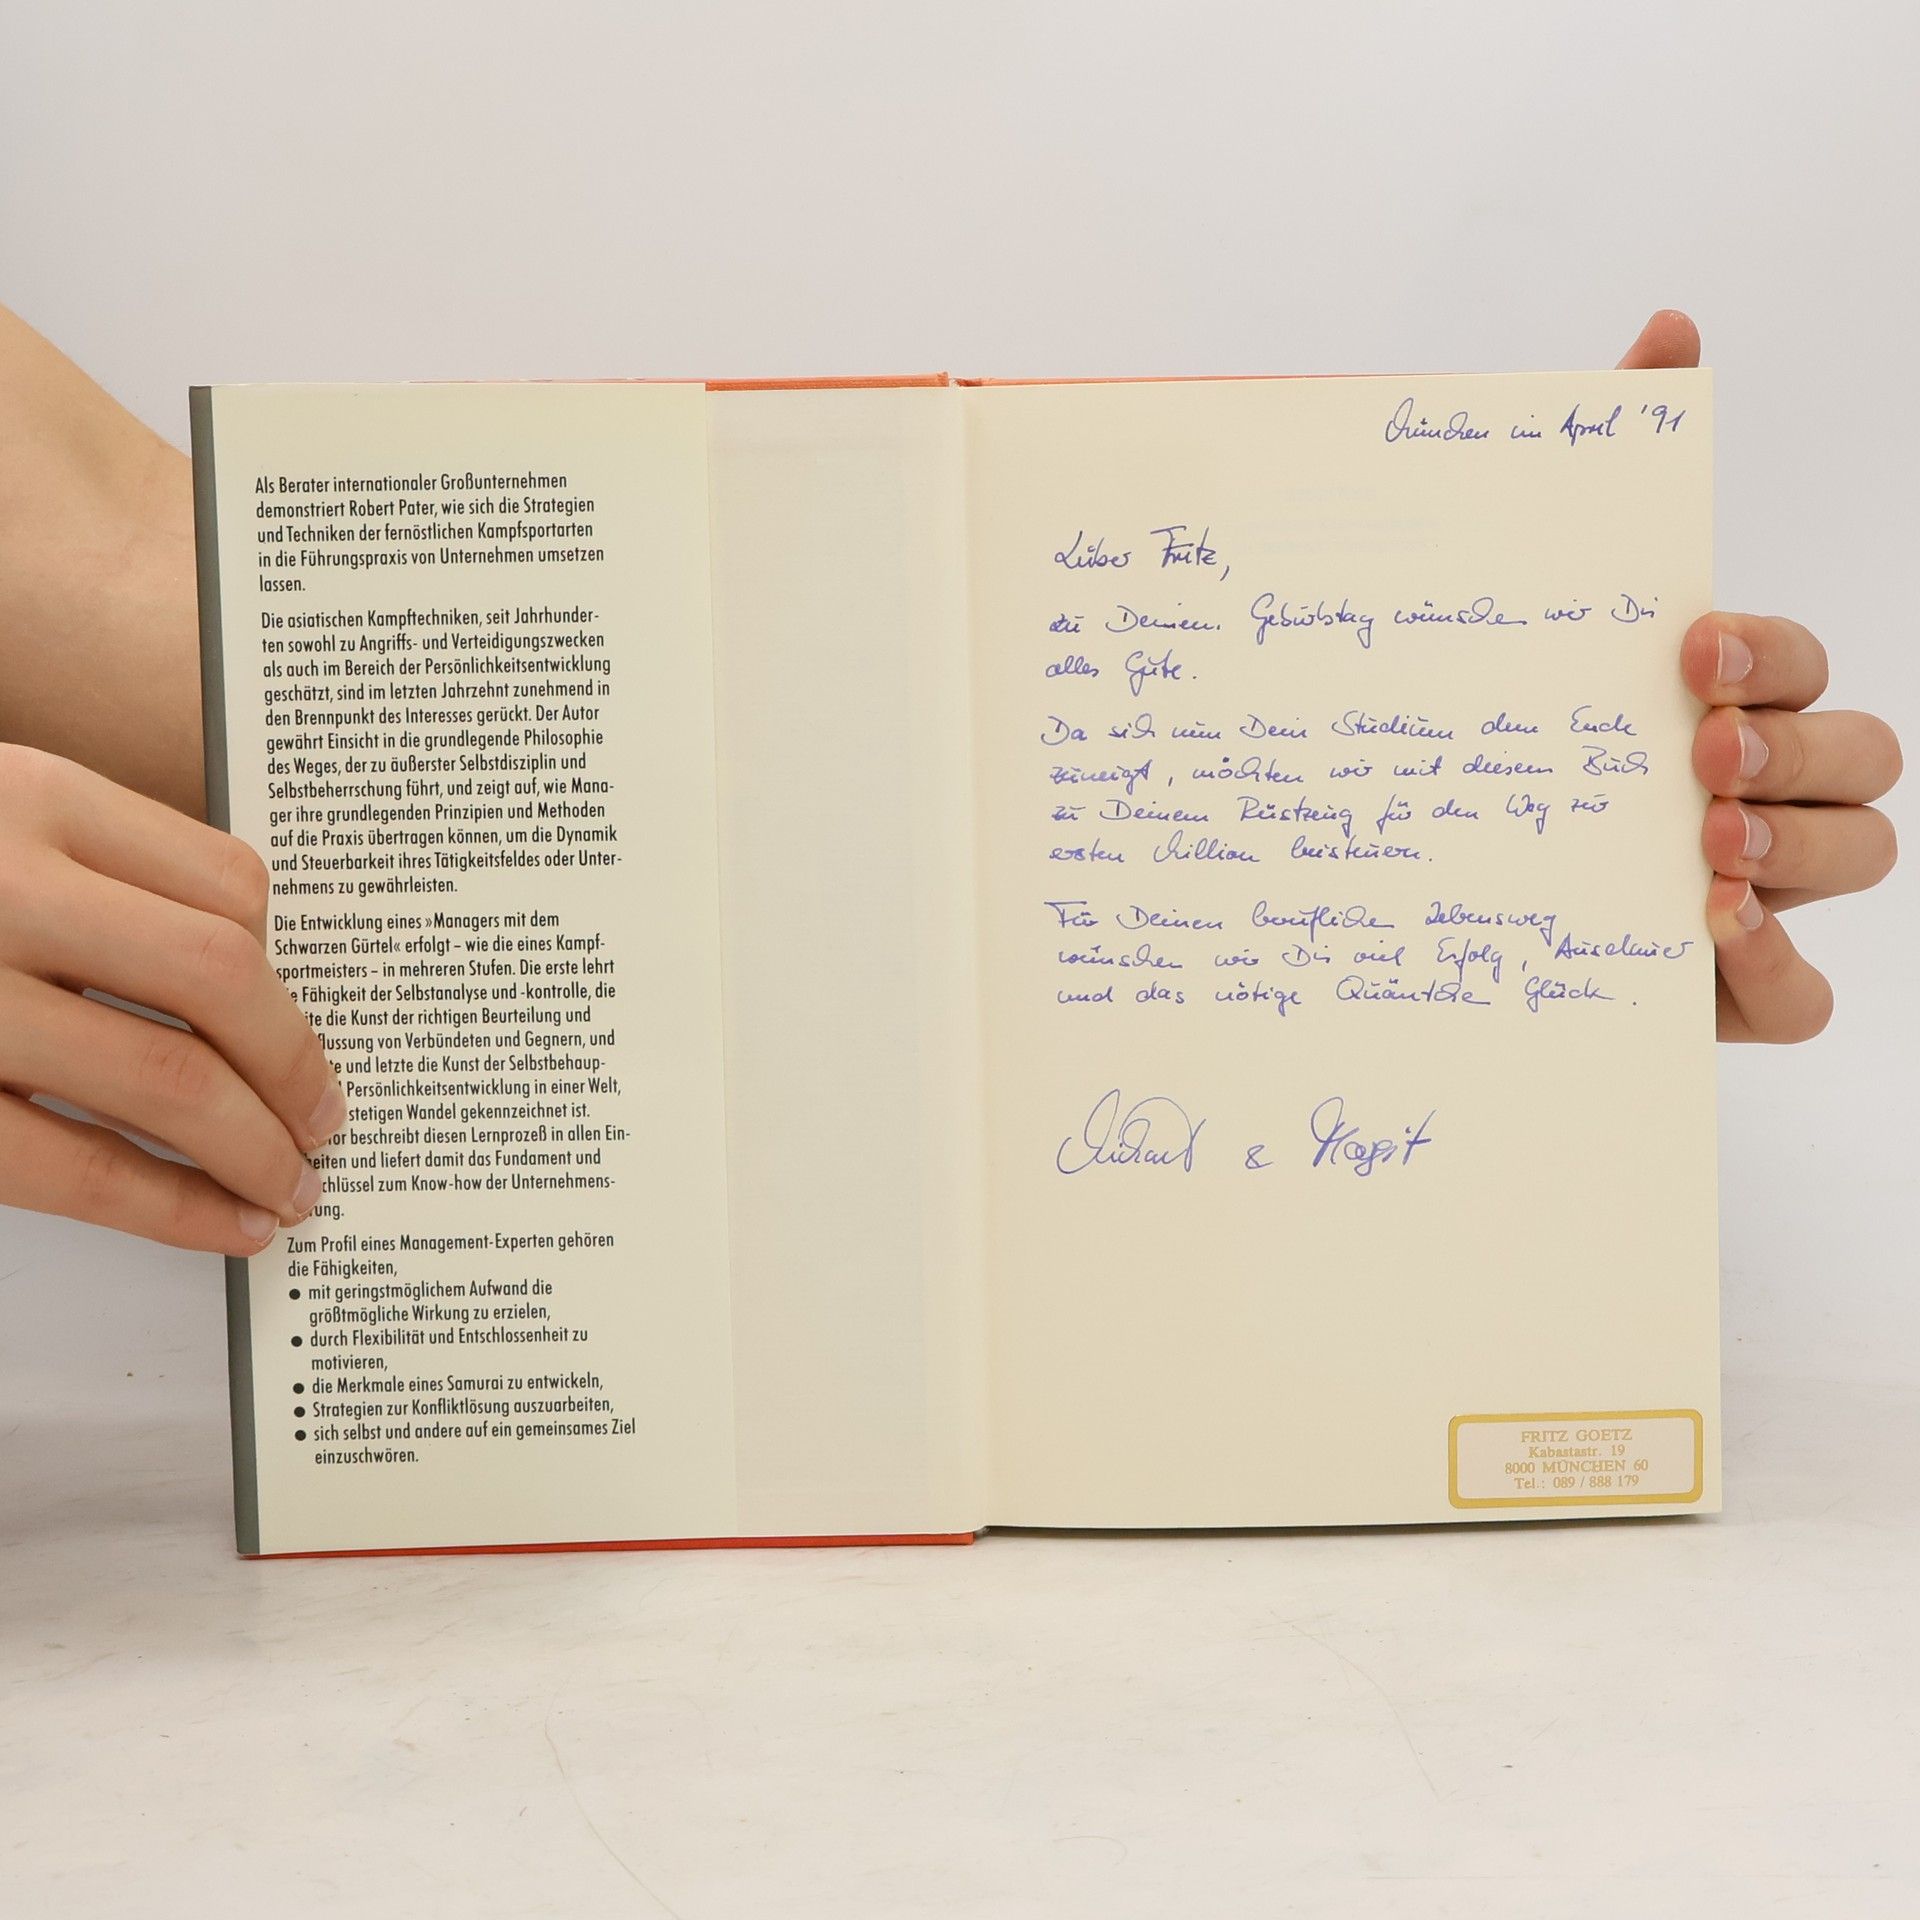 Als Berater internationaler Großunternehmen
demonstriert Robert Pater, wie sich die Strategien
und Techniken der fernöstlichen Kampfsportarten
in die Führungspraxis von Unternehmen umsetzen
lassen.
Die asiatischen Kampftechniken, seit Jahrhunder-
ten sowohl zu Angriffs- und Verteidigungszwecken
als auch im Bereich der Persönlichkeitsentwicklung
geschätzt, sind im letzten Jahrzehnt zunehmend in
den Brennpunkt des Interesses gerückt. Der Autor
gewährt Einsicht in die grundlegende Philosophie
des Weges, der zu äußerster Selbstdisziplin und
Selbstbeherrschung führt, und zeigt auf, wie Mana-
ger ihre grundlegenden Prinzipien und Methoden
auf die Praxis übertragen können, um die Dynamik
und Steuerbarkeit ihres Tätigkeitsfeldes oder Unter-
nehmens zu gewährleisten.
Die Entwicklung eines »Managers mit dem
Schwarzen Gürtel« erfolgt – wie die eines Kampf-
sportmeisters – in mehreren Stufen. Die erste lehrt
Fähigkeit der Selbstanalyse und -kontrolle, die
die Kunst der richtigen Beurteilung und
flussung von Verbündeten und Gegnern, und
und letzte die Kunst der Selbstbehaup-
Persönlichkeitsentwicklung in einer Welt,
stetigen Wandel gekennzeichnet ist.
beschreibt diesen Lernprozeß in allen Ein-
heiten und liefert damit das Fundament und
chlüssel zum Know-how der Unternehmens-
ung.
Zum Profil eines Management-Experten gehören
die Fähigkeiten,
● mit geringstmöglichem Aufwand die
größtmögliche Wirkung zu erzielen,
● durch Flexibilität und Entschlossenheit zu
motivieren,
● die Merkmale eines Samurai zu entwickeln,
● Strategien zur Konfliktlösung auszuarbeiten,
● sich selbst und andere auf ein gemeinsames Ziel
einzuschwören.
München im April '91
Lieber Fritz,
zu Deinem Geburtstag wünschen wir Dir
alles Gute.
Da sich nun Dein Studium dem Ende
zuneigt, möchten wir mit diesem Buch
zu Deinem Rüstzeug für den Weg zur
ersten Million beisteuern.
Für Deinen beruflichen Lebensweg
wünschen wir Dir viel Erfolg, Ausdauer
und das nötige Quäntchen Glück.
& Margit
FRITZ GOETZ
Kabastastr. 19
8000 MÜNCHEN 60
Tel.: 089 / 888 179